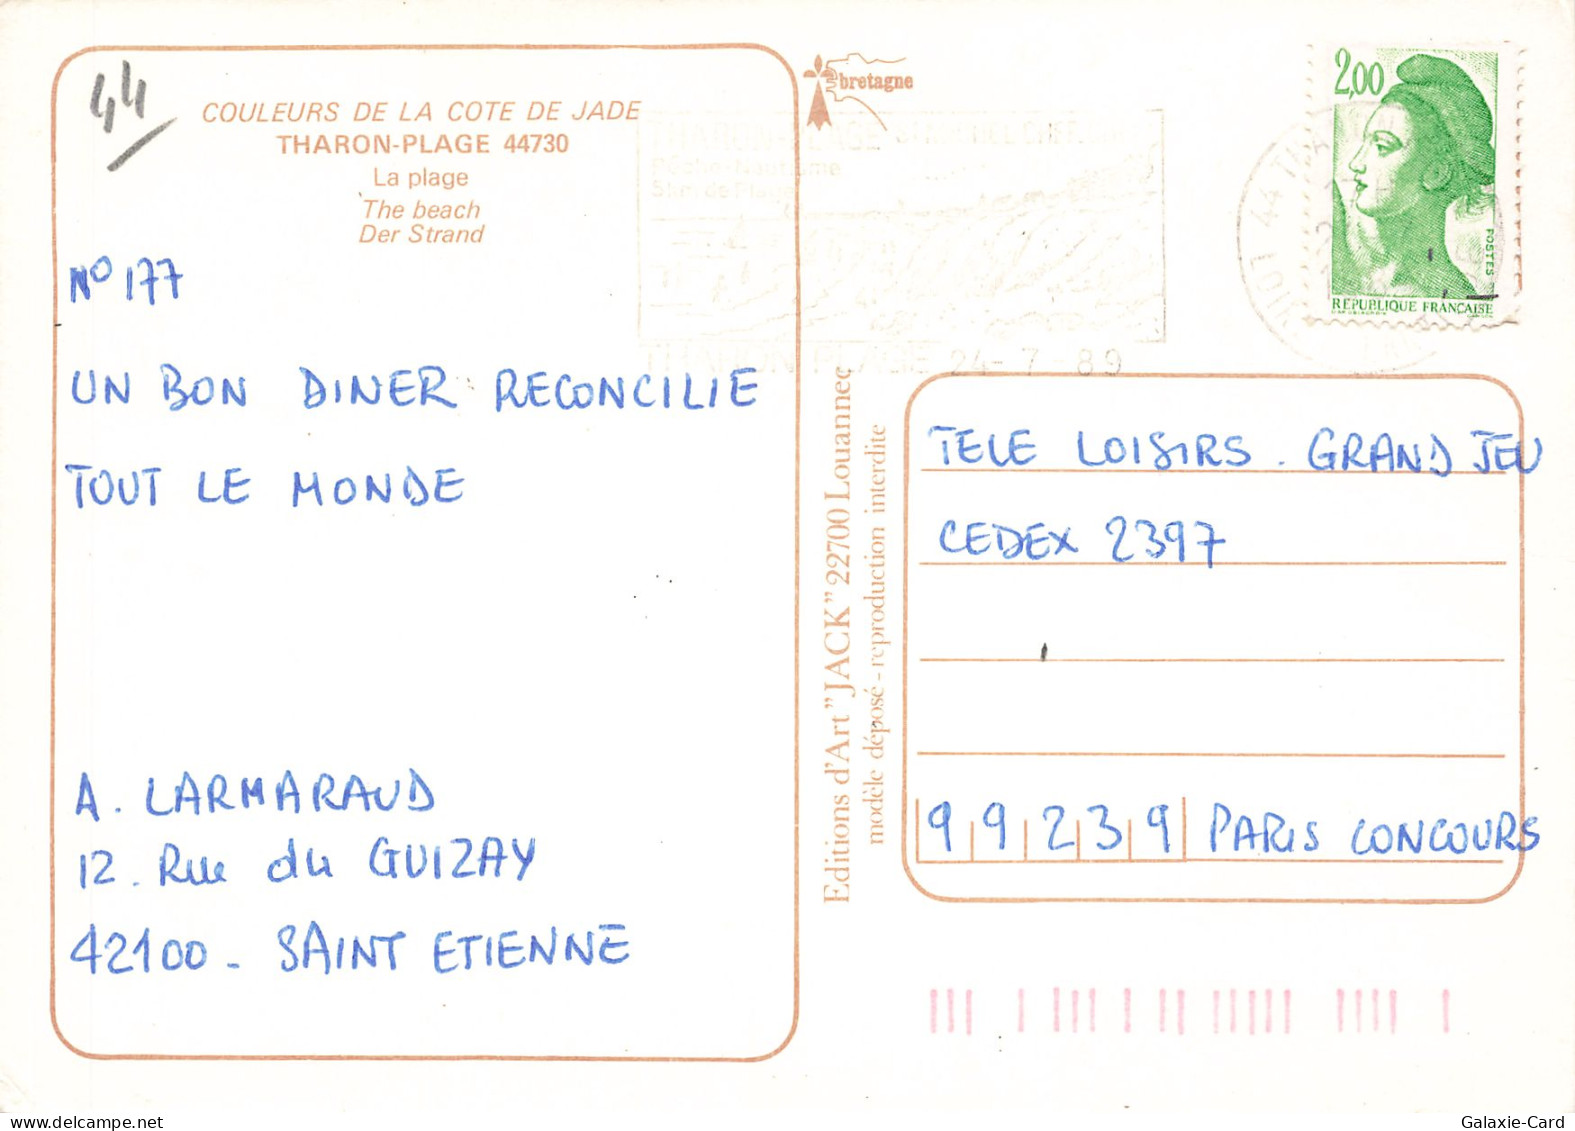 44
COULEURS DE LA COTE DE JADE
THARON-PLAGE 44730
La plage
The beach
Der Strand
N° 177
UN BON DINER RECONCILIE
TOUT LE MONDE
A. LARMARAUD
12. Rue du GUIZAY
42100 - SAINT ETIENNE
bretagne
THARON-PLAGE
Pêche Nautisme
THARON PLAGE 24-7-89
Editions d'Art "JACK" 22700 Louannec
modèle déposé - reproduction interdite
2,00
POSTES
REPUBLIQUE FRANÇAISE
TELE LOISIRS . GRAND JEU
CEDEX 2397
99239 PARIS CONCOURS
Galaxie-Card